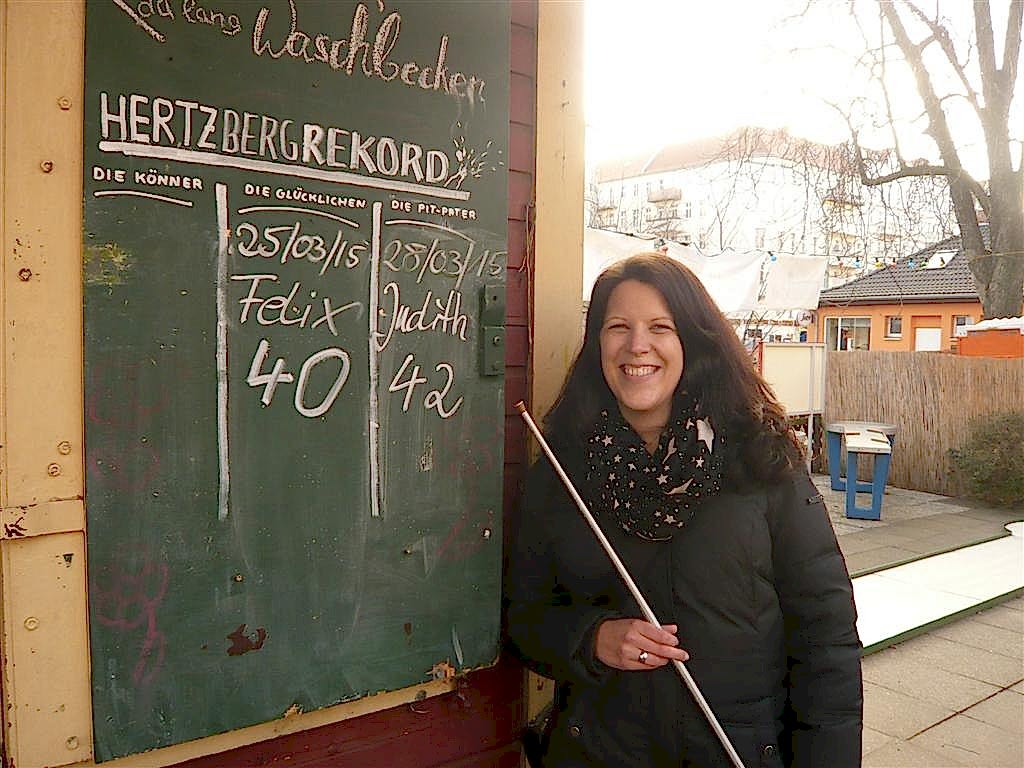 da lang
Waschbecken
HERTZBERGREKORD
DIE KÖNNER
DIE GLÜCKLICHEN
25/03/15
Felix
40
DIE PIT-PATER
28/03/15
Judith
42